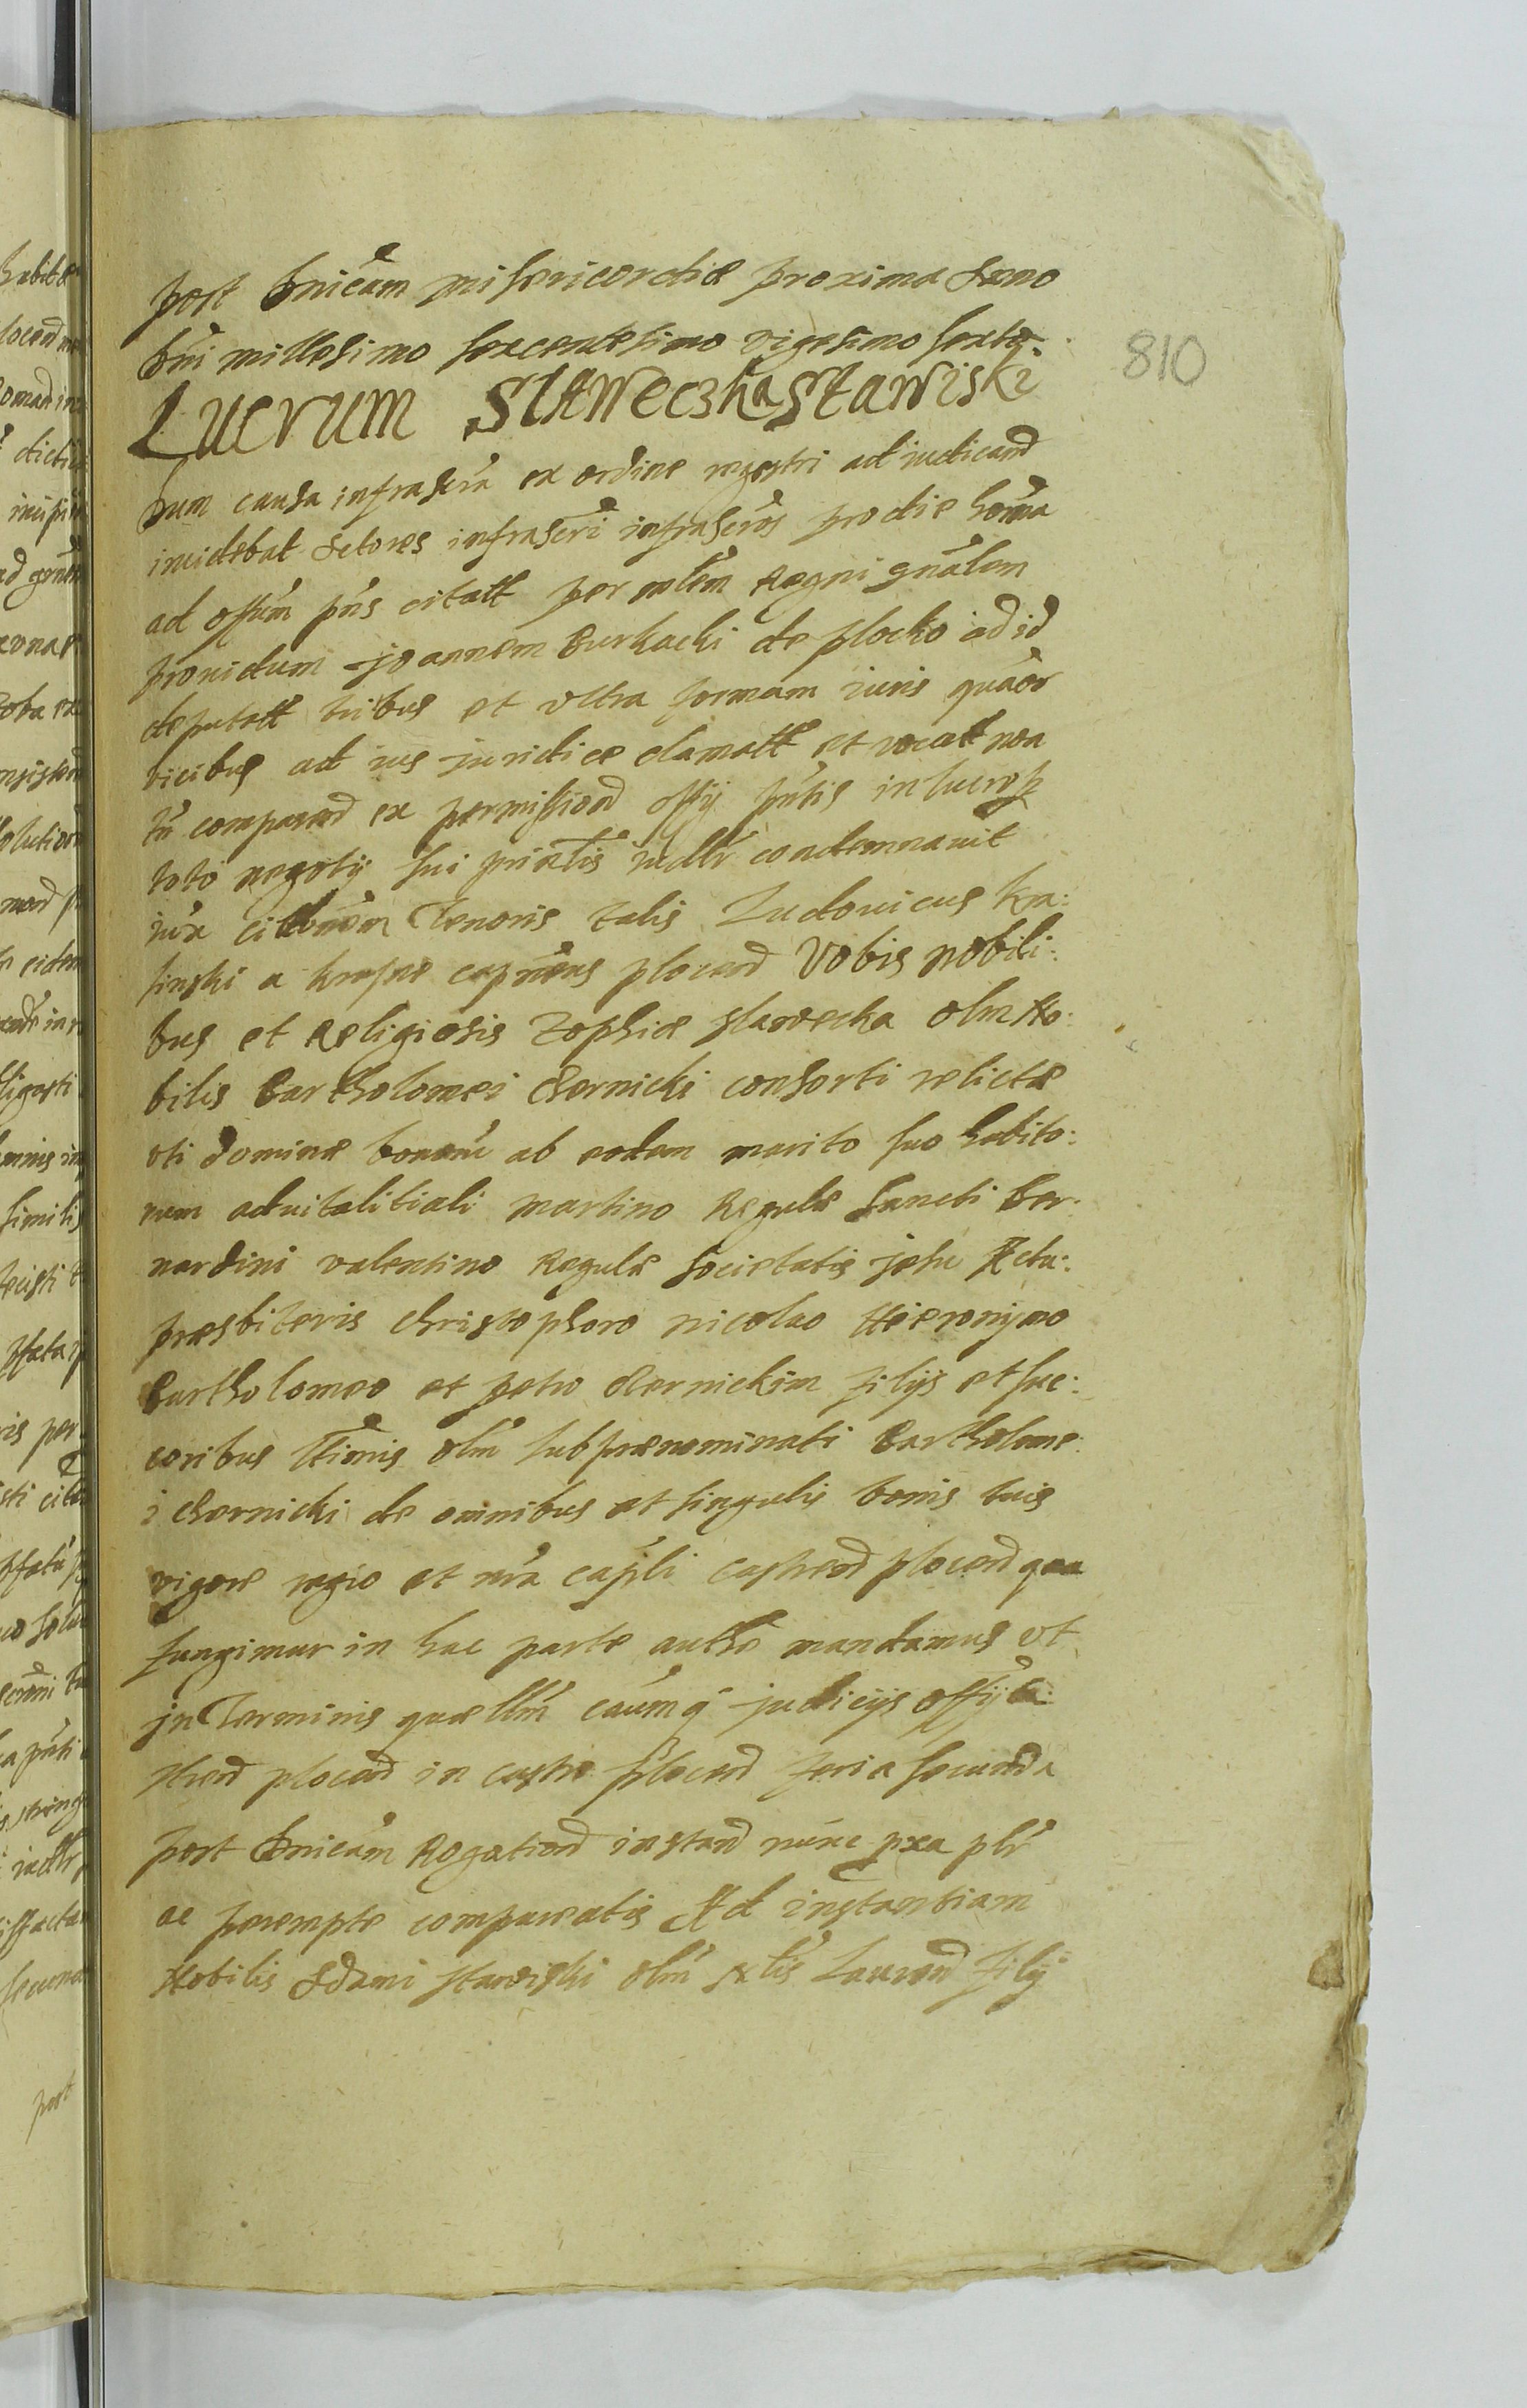 post Dnicam misericordiæ proxima Anno
Dni millesimo sexcentesimo vigesimo sexto.
810
Lucrum Slaweczka Stawiski
Dum causa infrascra ex ordine regestri ad iudicand
incidebat Actores infrascri infrascros pro die horna
ad offum pns citatt per mlem Regni gnalem
providum Joannem Burkacki de plocko ad id
deputatt tribus et vltra formam iuris quaor
vicibus ad ius juridice clamatt et vocatt non
tn comparend ex permissiond offij pntis in lucro
toto negotij sui prialis iudlr condemnauit
iuxa citbnem Tenoris talis Ludouicus Kra:
sinski a krasne capneus plocend Vobis nobili:
bus et Religiosis Zophiæ slawecka olm No:
bilis Bartholomei Czernicki consorti relictæ
vti dominæ bonorũ ab eodem marito suo habito:
rum aduitalitiali martino Regulæ Sancti Ber:
nardini valentino Regulæ Societatis jesu Actu:
præsbiteris Christophoro nicolao Hieronijmo
Bartholomeo et petro Czernickim filijs et suc:
coribus ltimis olm subprænominati Bartholome:
i Czernicki de omnibus et singulis bonis tuis
vigore regio et nra capli castrend plocend qua
fungimur in hac parte authe mandamus vt
jn Terminis quællm caumq judicijs offij ca:
strend plocend in castro plocend feria secunda
post Dnicam Rogationd instand nunc pxa plr
ac perempte compareatis Ad instantiam
Nobilis Adami stawiski olm Laurend filij
post